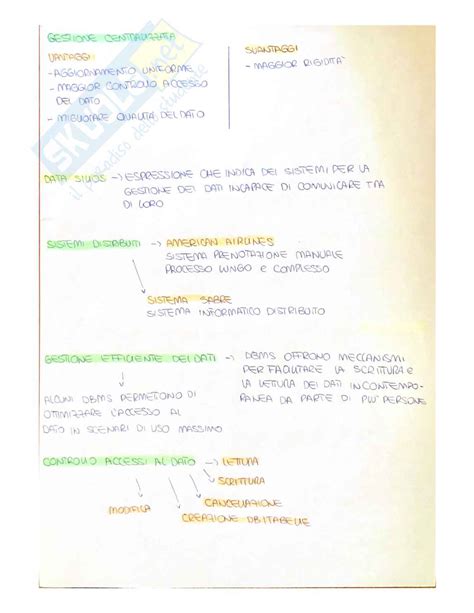 GESTIONE CENTRALIZZATA
VANTAGGI
- AGGIORNAMENTO UNIFORME
- MAGGIOR CONTROLLO ACCESSO
DEL DATO
- MIGLIORARE QUALITÀ DEL DATO
SVANTAGGI
- MAGGIOR RIGIDITÀ
SKUOLA.net
il paradiso dello studente
DATA SILOS → ESPRESSIONE CHE INDICA DEI SISTEMI PER LA
GESTIONE DEI DATI INCAPACE DI COMUNICARE TRA
DI LORO
SISTEMI DISTRIBUITI → AMERICAN AIRLINES
SISTEMA PRENOTAZIONE MANUALE
PROCESSO LUNGO E COMPLESSO
SISTEMA SABRE
SISTEMA INFORMATICO DISTRIBUITO
GESTIONE EFFICIENTE DEI DATI → DBMS OFFRONO MECCANISMI
PER FACILITARE LA SCRITTURA E
LA LETTURA DEI DATI IN CONTEMPO-
RANEA DA PARTE DI PIÙ PERSONE
ALCUNI DBMS PERMETTONO DI
OTTIMIZZARE L'ACCESSO AL
DATO IN SCENARI DI USO MASSIMO
CONTROLLO ACCESSI AL DATO → LETTURA
SCRITTURA
CANCELLAZIONE
CREAZIONE DB | TABELLE
MODIFICA